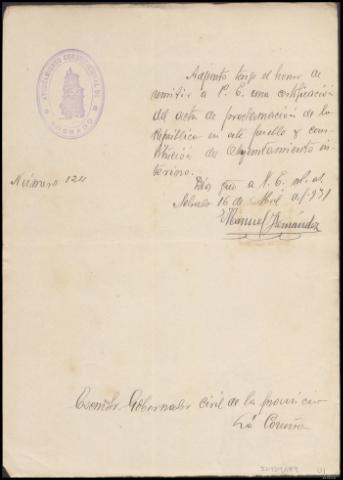 AYUNTAMIENTO CONSTITUCIONAL DE
SOBRADO
Adjunto tengo el honor de
remitir a V. E. una certificación
del acta de proclamación de la
República en este pueblo y cons-
titución del Ayuntamiento in-
terino.
Número 124
Sobrado 16 de Abril de 1931
Manuel Hernández
Gobernador Civil de la provincia
La Coruña